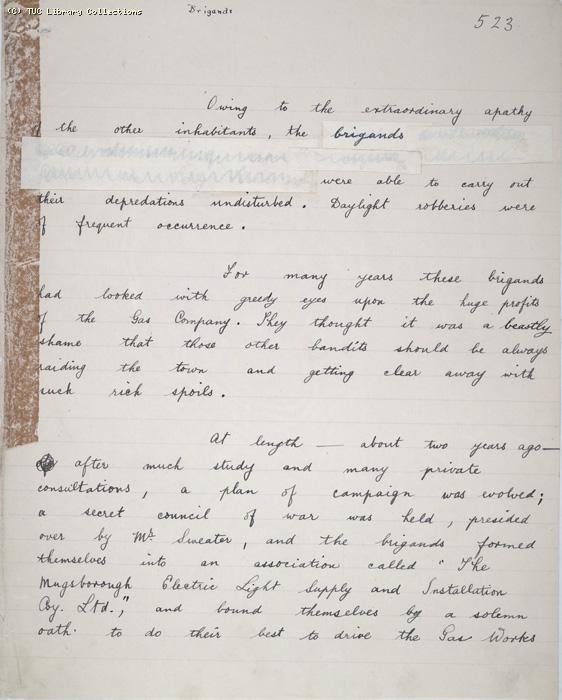 (C) TUC Library Collections
Brigands
523
Owing to the extraordinary apathy
of the other inhabitants, the brigands
were able to carry out
their depredations undisturbed. Daylight robberies were
of frequent occurrence.
For many years these brigands
had looked with greedy eyes upon the huge profits
of the Gas Company. They thought it was a beastly
shame that those other bandits should be always
raiding the town and getting clear away with
such rich spoils.
At length — about two years ago —
after much study and many private
consultations, a plan of campaign was evolved;
a secret council of war was held, presided
over by Mr. Sweater, and the brigands formed
themselves into an association called "The
Mugsborough Electric Light Supply and Installation
Coy. Ltd.", and bound themselves by a solemn
oath to do their best to drive the Gas Works